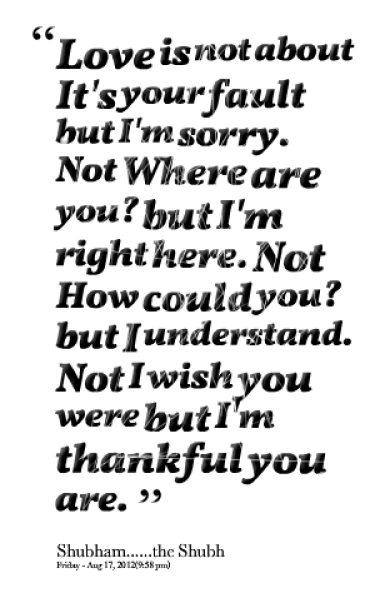 “ Love is not about
It's your fault
but I'm sorry.
Not Where are
you? but I'm
right here. Not
How could you?
but I understand.
Not I wish you
were but I'm
thankful you
are. ”
Shubham......the Shubh
Friday - Aug 17, 2012(9:58 pm)